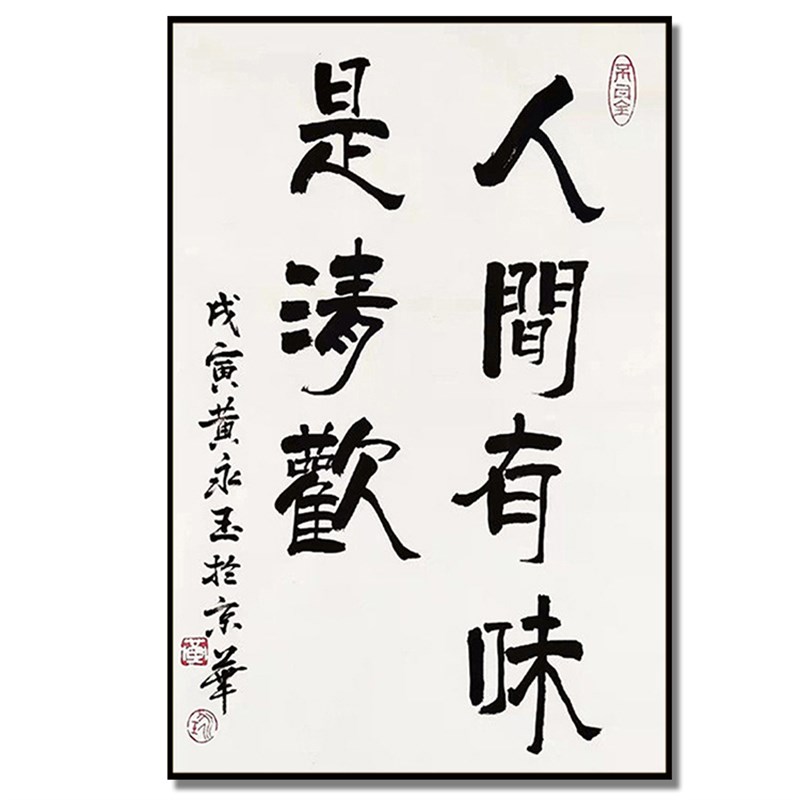 人間有味
是清歡
戊寅黄永玉於京華